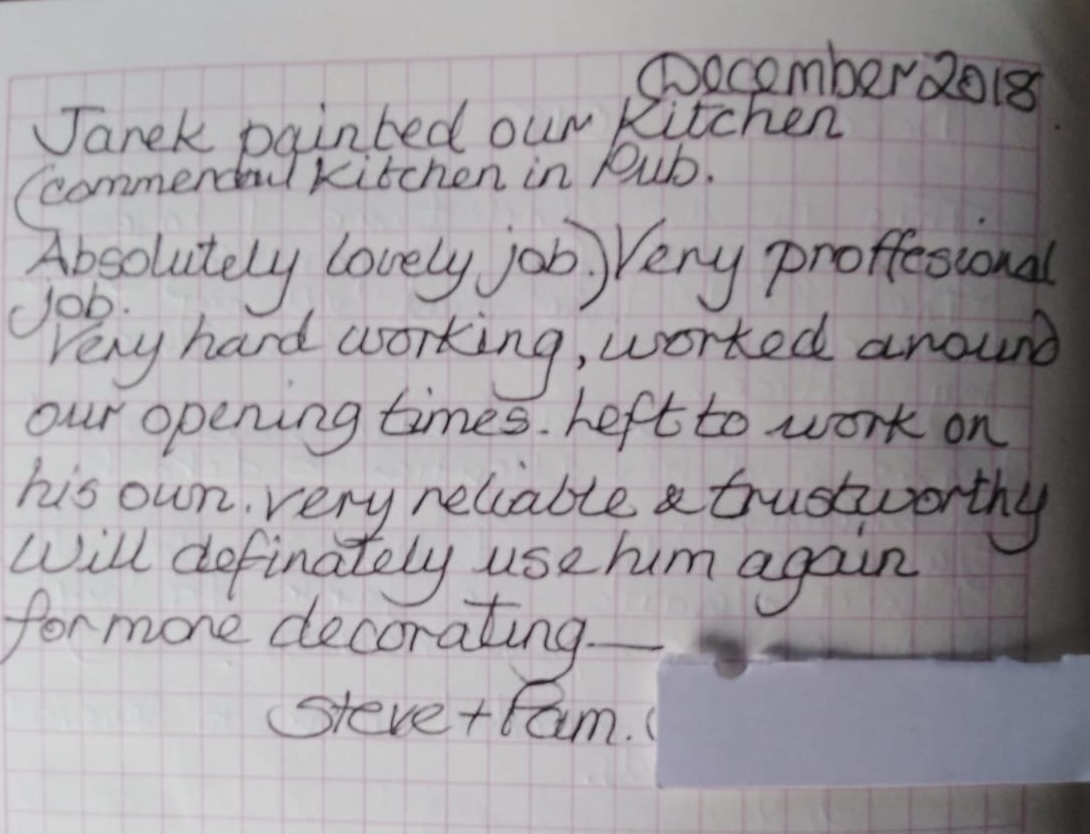 December 2018.
Janek painted our Kitchen
(commercial Kitchen in Pub.
Absolutely lovely job.) Very proffesional
job.
Very hard working, worked around
our opening times. Left to work on
his own. very reliable & trustworthy
Will definately use him again
for more decorating —
Steve + Pam. (